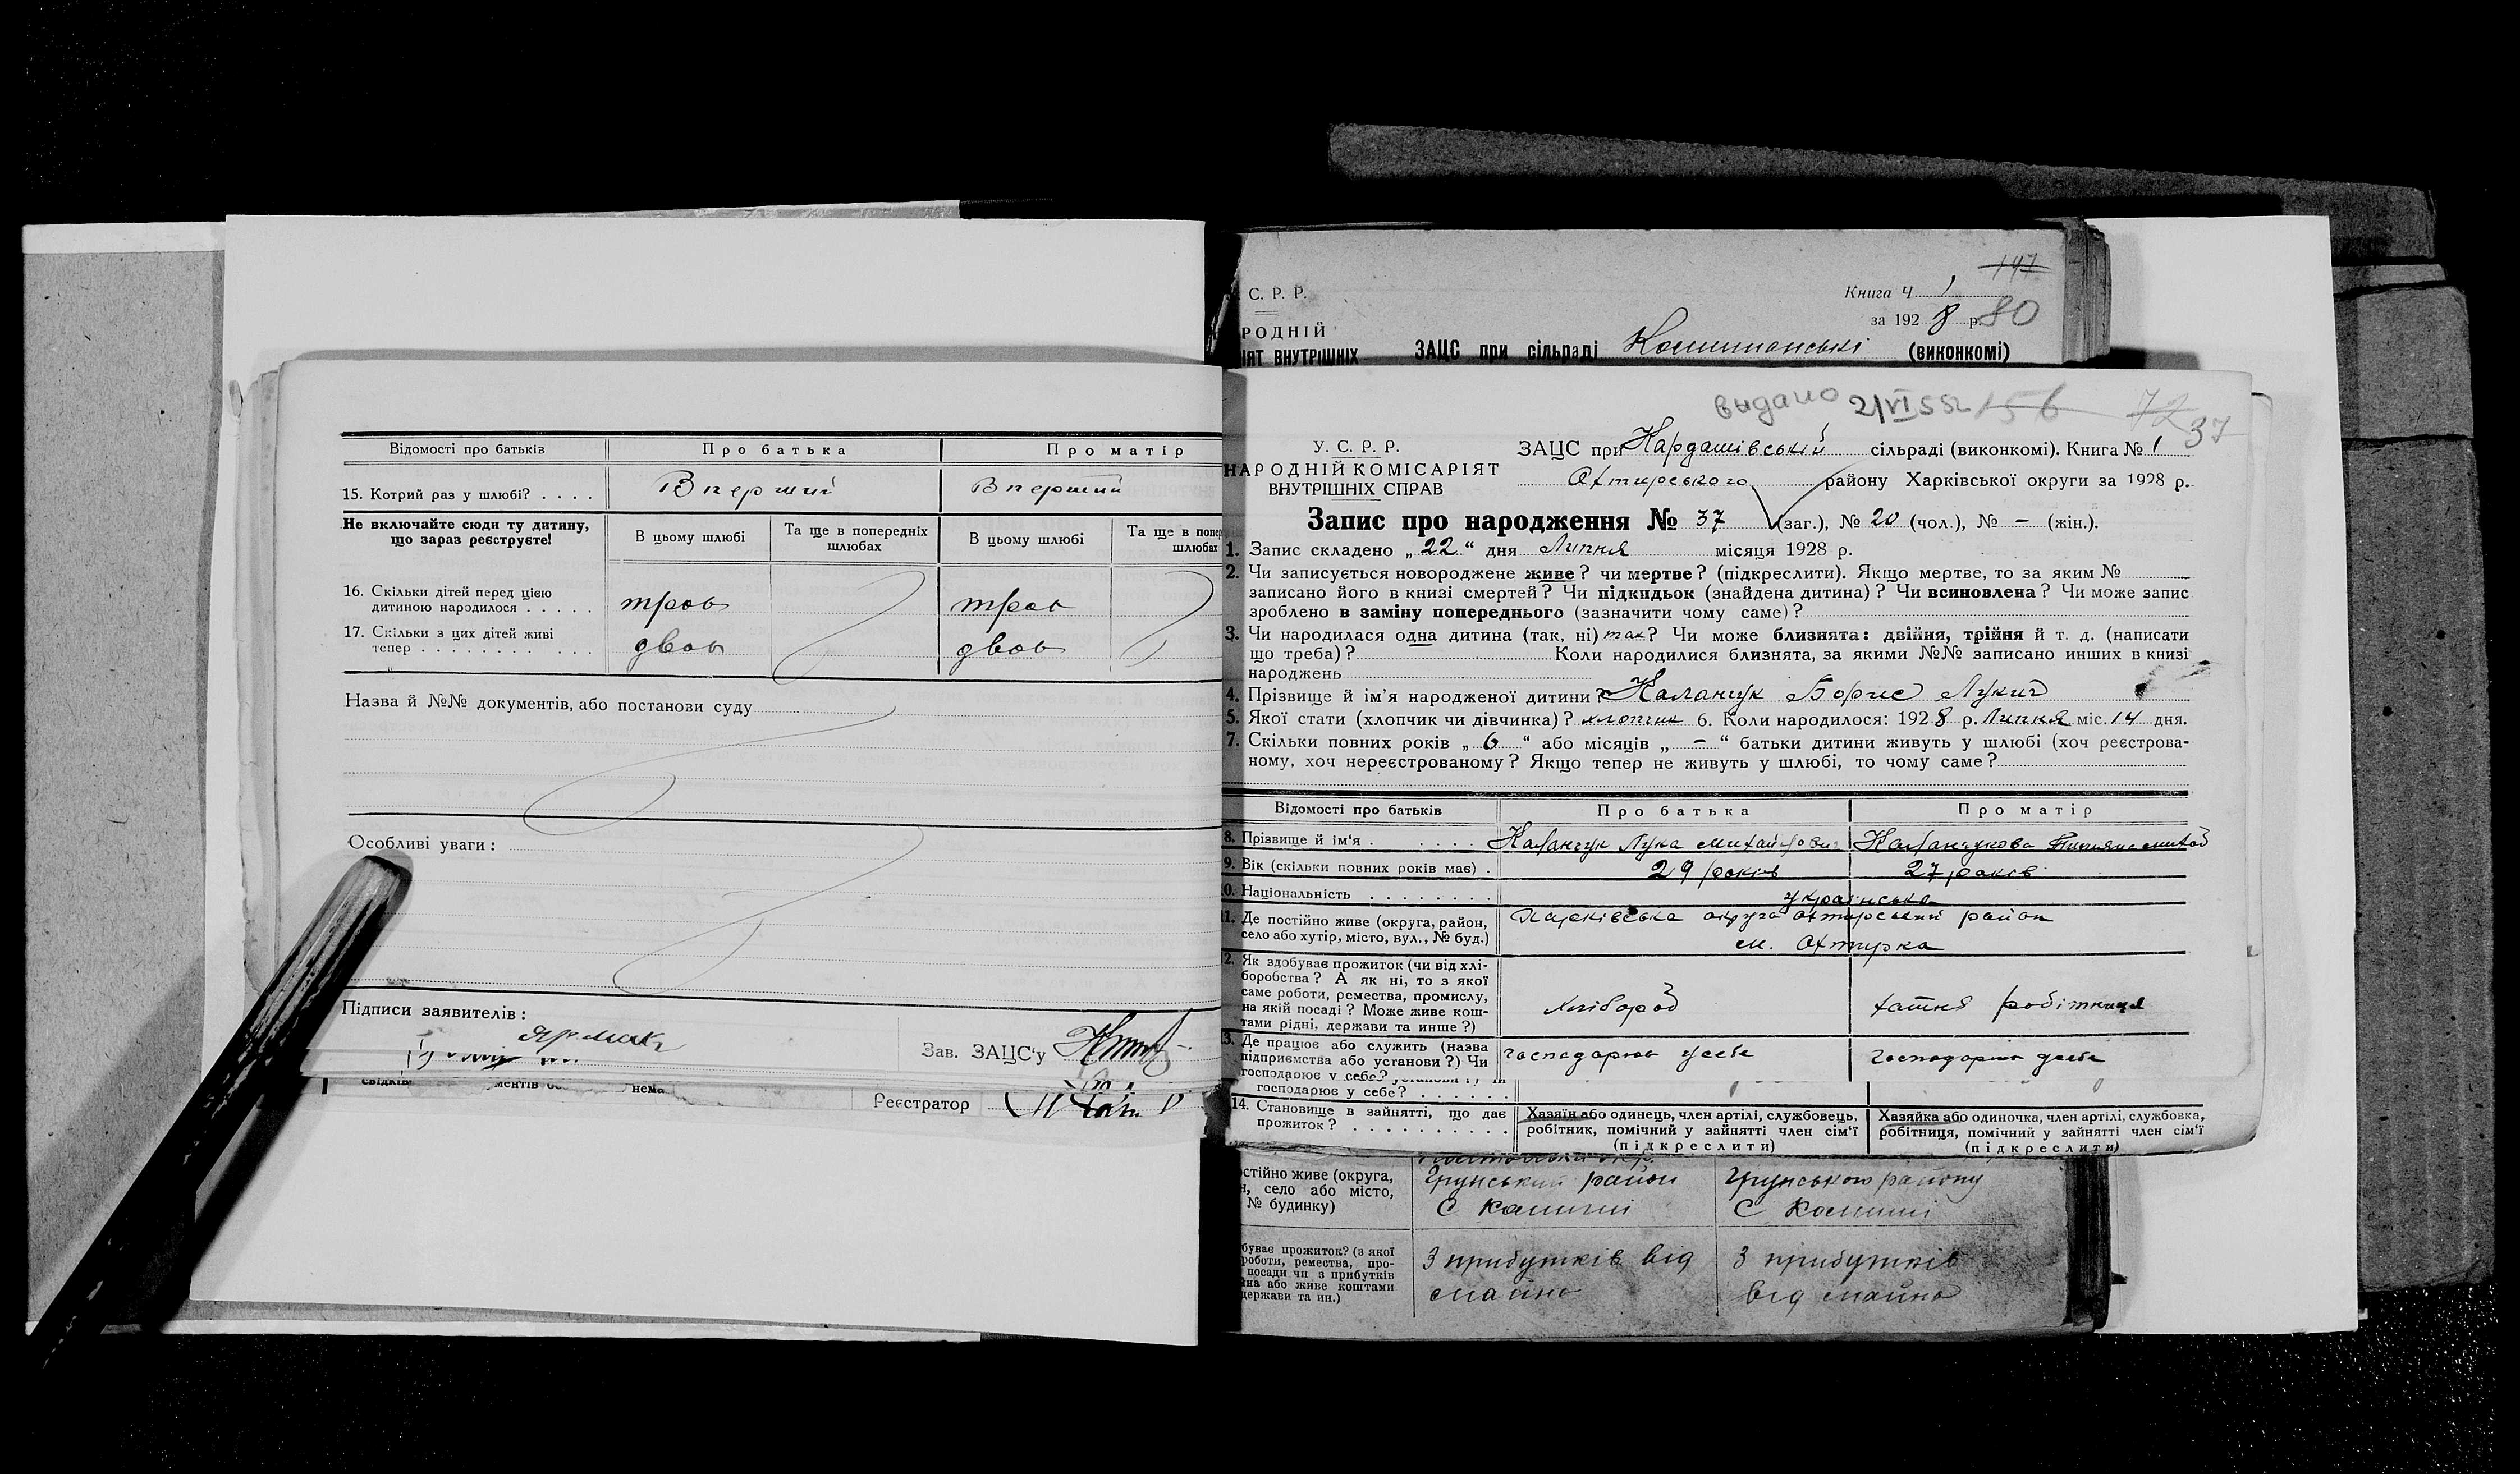 Відомості про батьків Про батька Про матір
15. Котрий раз у шлюбі? . . . . Вперший Вперший
Не включайте сюди ту дитину, що зараз реєструєте!
В цьому шлюбі Та ще в попередніх шлюбах В цьому шлюбі
16. Скільки дітей перед цією
дитиною народилося . . . . . троє троє
17. Скільки з цих дітей живі
тепер . . . . . . . . . . . двоє двоє
Назва й №№ документів, або постанови суду
Особливі уваги:
Підписи заявителів:
Ярмак
Зав. ЗАЦС'у
нема
Реєстратор
147
С. Р. Р. Книга Ч 1
за 1928 р. 80
РОДНІЙ
ІЯТ ВНУТРІШНІХ ЗАЦС при сільраді (виконкомі)
выдано 2/VI 55 156 72 37
У. С. Р. Р. ЗАЦС при Кардашівській сільраді (виконкомі). Книга № 1
НАРОДНІЙ КОМІСАРІЯТ Охтирського району Харківської округи за 1928 р.
ВНУТРІШНІХ СПРАВ
Запис про народження № 37 (заг.), № 20 (чол.), № – (жін.).
1. Запис складено „ 22 “ дня Липня місяця 1928 р.
2. Чи записується новороджене живе? чи мертве? (підкреслити). Якщо мертве, то за яким №
записано його в книзі смертей? Чи підкидьок (знайдена дитина)? Чи всиновлена? Чи може запис
зроблено в заміну попереднього (зазначити чому саме)?
3. Чи народилася одна дитина (так, ні) так? Чи може близнята: двійня, трійня й т. д. (написати
що треба)? Коли народилися близнята, за якими №№ записано инших в книзі
народжень
4. Прізвище й ім'я народженої дитини? Каланчук Борис Лукич
5. Якої стати (хлопчик чи дівчинка)? хлопчик 6. Коли народилося: 1928 р. Липня міс. 14 дня.
7. Скільки повних років „ 6 “ або місяців „ – “ батьки дитини живуть у шлюбі (хоч реєстрова-
ному, хоч нереєстрованому? Якщо тепер не живуть у шлюбі, то чому саме?
Відомості про батьків Про батька Про матір
8. Прізвище й ім'я . . . . . Каланчук Лука Михайлович Каланчукова
9. Вік (скільки повних років має) . 29 років 27 років
10. Національність . . . . . . . . українська
11. Де постійно живе (округа, район, Харківська округа Охтирський район
село або хутір, місто, вул., № буд.) м. Охтирка
12. Як здобуває прожиток (чи від хлі-
боробства? А як ні, то з якої
саме роботи, ремества, промислу,
на якій посаді? Може живе кош-
тами рідні, держави та инше?)
хлібороб хатня робітниця
13. Де працює або служить (назва
підприємства або установи?) Чи
господарює у себе?
господарює у себе господарює у себе
господарює у себе? . . . . . .
14. Становище в зайнятті, що дає
прожиток? . . . . . . . . . .
Хазяїн або одинець, член артілі, службовець,
робітник, помічний у зайнятті член сім'ї
(підкреслити)
Хазяйка або одиночка, член артілі, службовка,
робітниця, помічний у зайнятті член сім'ї
(підкреслити)
остійно живе (округа,
н, село або місто,
№ будинку)
Грунський район
С Комиші
Грунського району
С Комиші
буває прожиток? (з якої
роботи, ремества, про-
посади чи з прибутків
йна або живе коштами
держави та ин.)
З прибутків від
майна
З прибутків
від майна